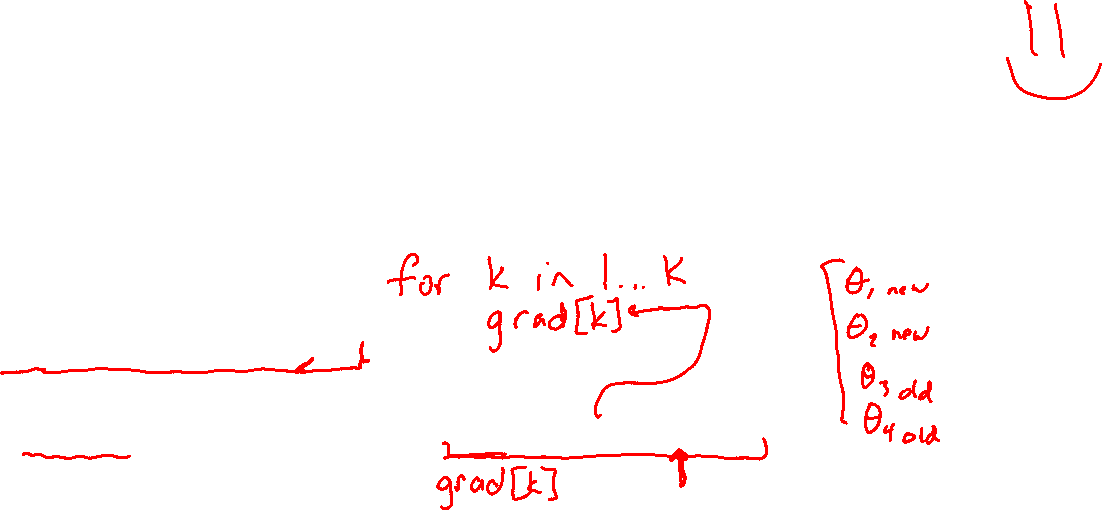 for k in 1... K
grad[k]
grad[k]
θ1 new
θ2 new
θ3 old
θ4 old